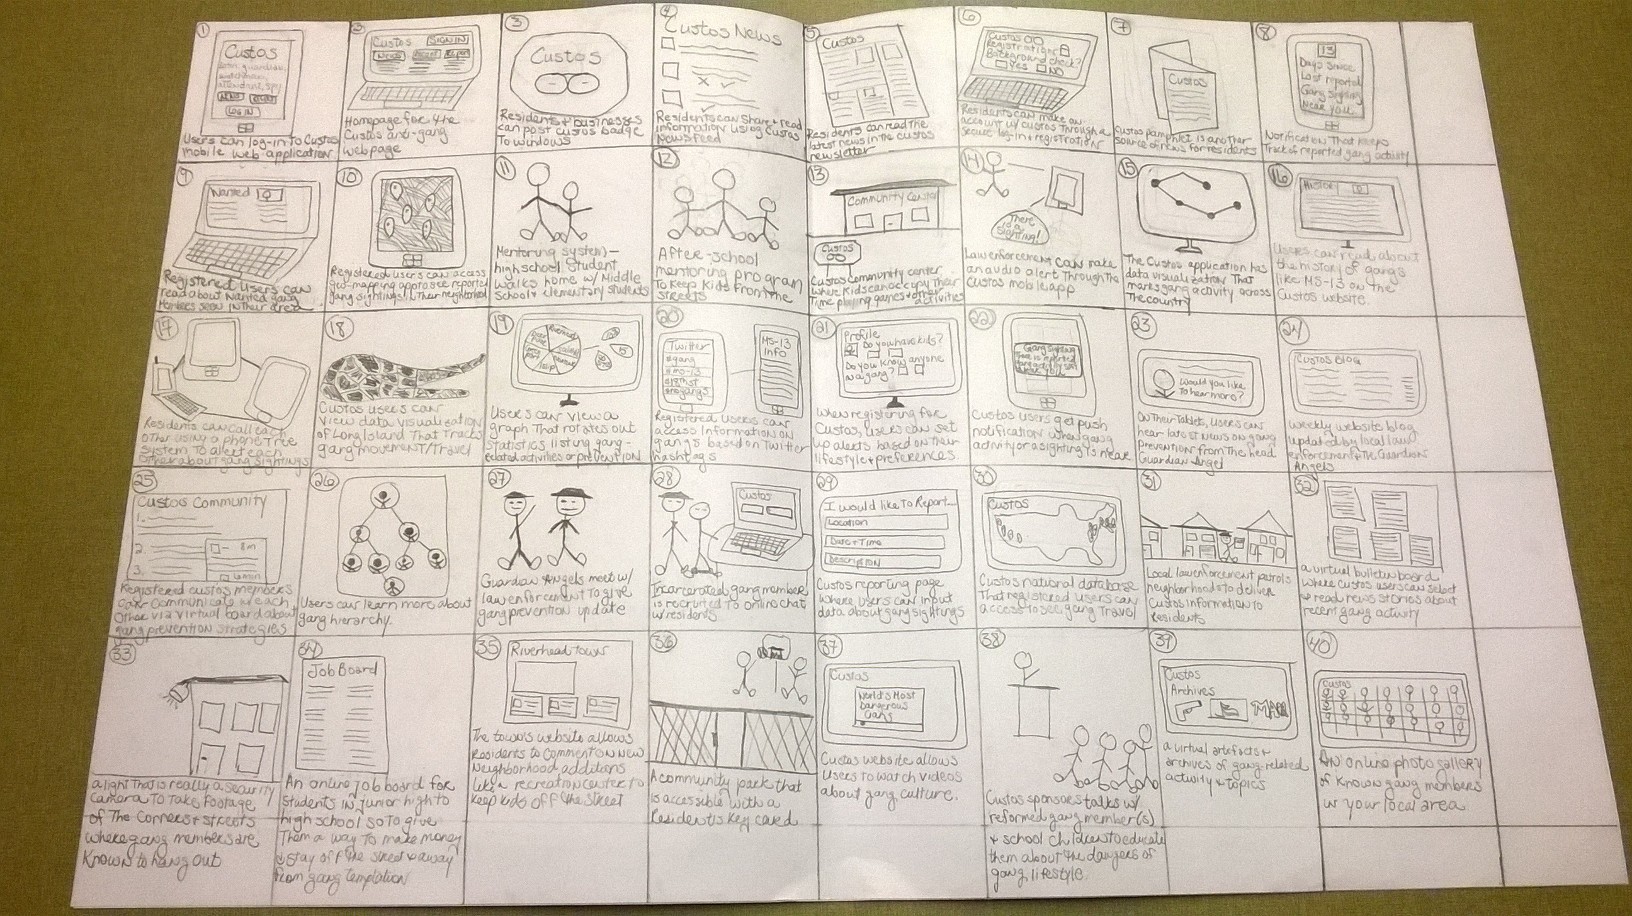 1
Custos
NEWS
LOG IN
Users can log-in to Custos
mobile web application
2
Custos SIGN IN
News Report
Homepage for the
Custos anti-gang
webpage
3
Custos
Residents & businesses
can post custos badge
to windows
4
Custos News
Residents can share & read
information using Custos
Newsfeed
5
Custos
Residents can read the
latest news in the custos
newsletter
6
Custos
Registration:
Background check?
Yes NO
Residents can make an
account w/ custos through a
secure log-in & registration
7
Custos
Custos pamphlet is another
source of news for residents
8
13
Days since
Last reported
Gang sighting
Near you
Notification that keeps
Track of reported gang activity
9
Wanted
Registered users can
read about wanted gang
members seen in their area
10
Registered users can access
geo-mapping app to see reported
gang sightings in their neighborhood
11
Mentoring system -
high school student
walks home w/ Middle
School & elementary students
12
After-school
mentoring program
To keep kids from the
streets
13
Community Center
Custos
Custos Community center
where kids can occupy their
Time playing games & other activities
14
There
is a
sighting!
Law enforcement can make
an audio alert through the
custos mobile app
15
The Custos application has
data visualization that
marks gang activity across
the country
16
History
Users can read about
the history of gangs
like MS-13 on the
Custos website.
17
Residents can call each
other using a phone tree
system to alert each
other about gang sightings
18
Custos users can
view data visualization
of Long Island that tracks
gang movement/travel
19
Users can view a
graph that rotates out
statistics listing gang-
related activities or prevention
20
Twitter
#gang
#ms-13
#18thst
#nogangs
MS-13
Info
Registered users can
access information on
gangs based on Twitter
hashtags
21
Profile
Do you have kids?
Do you know anyone
in a gang?
When registering for
Custos, users can set
up alerts based on their
lifestyle & preferences.
22
Gang Sighting
Custos users get push
notification when gang
activity or a sighting is near
23
Would you like
to hear more?
On their tablet, users can
hear latest news on gang
prevention from the head
Guardian Angel
24
Custos Blog
weekly website blog
updated by local law
enforcement & the Guardian
Angels
25
Custos Community
1.
2.
3.
Registered custos members
can communicate w/ each
other via virtual board about
gang prevention strategies
26
Users can learn more about
gang hierarchy.
27
Guardian Angels meet w/
law enforcement to give
gang prevention update
28
Custos
Incarcerated gang member
is recruited to online chat
w/ residents
29
I would like to Report...
Location
Date & Time
Description
Custos reporting page
where users can input
data about gang sightings
30
Custos
Custos national database
that registered users can
access to see gang travel
31
Local law enforcement patrols
neighborhoods to deliver
Custos information to
residents
32
a virtual bulletin board
where custos users can select
& read news stories about
recent gang activity
33
a light that is really a security
camera to take footage
of the corners & streets
where gang members are
known to hang out
34
Job Board
An online job board for
students in junior high to
high school so to give
them a way to make money
& stay off the street & away
from gang temptation
35
Riverhead town
The town's website allows
residents to comment on new
neighborhood additions
like a recreation center to
keep kids off the street
36
A community park that
is accessible with a
resident's key card
37
Custos
World's Most
Dangerous
Gangs
Custos website allows
users to watch videos
about gang culture.
38
Custos sponsors talks w/
reformed gang member(s)
& school children to educate
them about the dangers of
gang lifestyle
39
Custos
Archives
a virtual artefacts &
archives of gang-related
activity & topics
40
Custos
An online photo gallery
of known gang members
in your local area